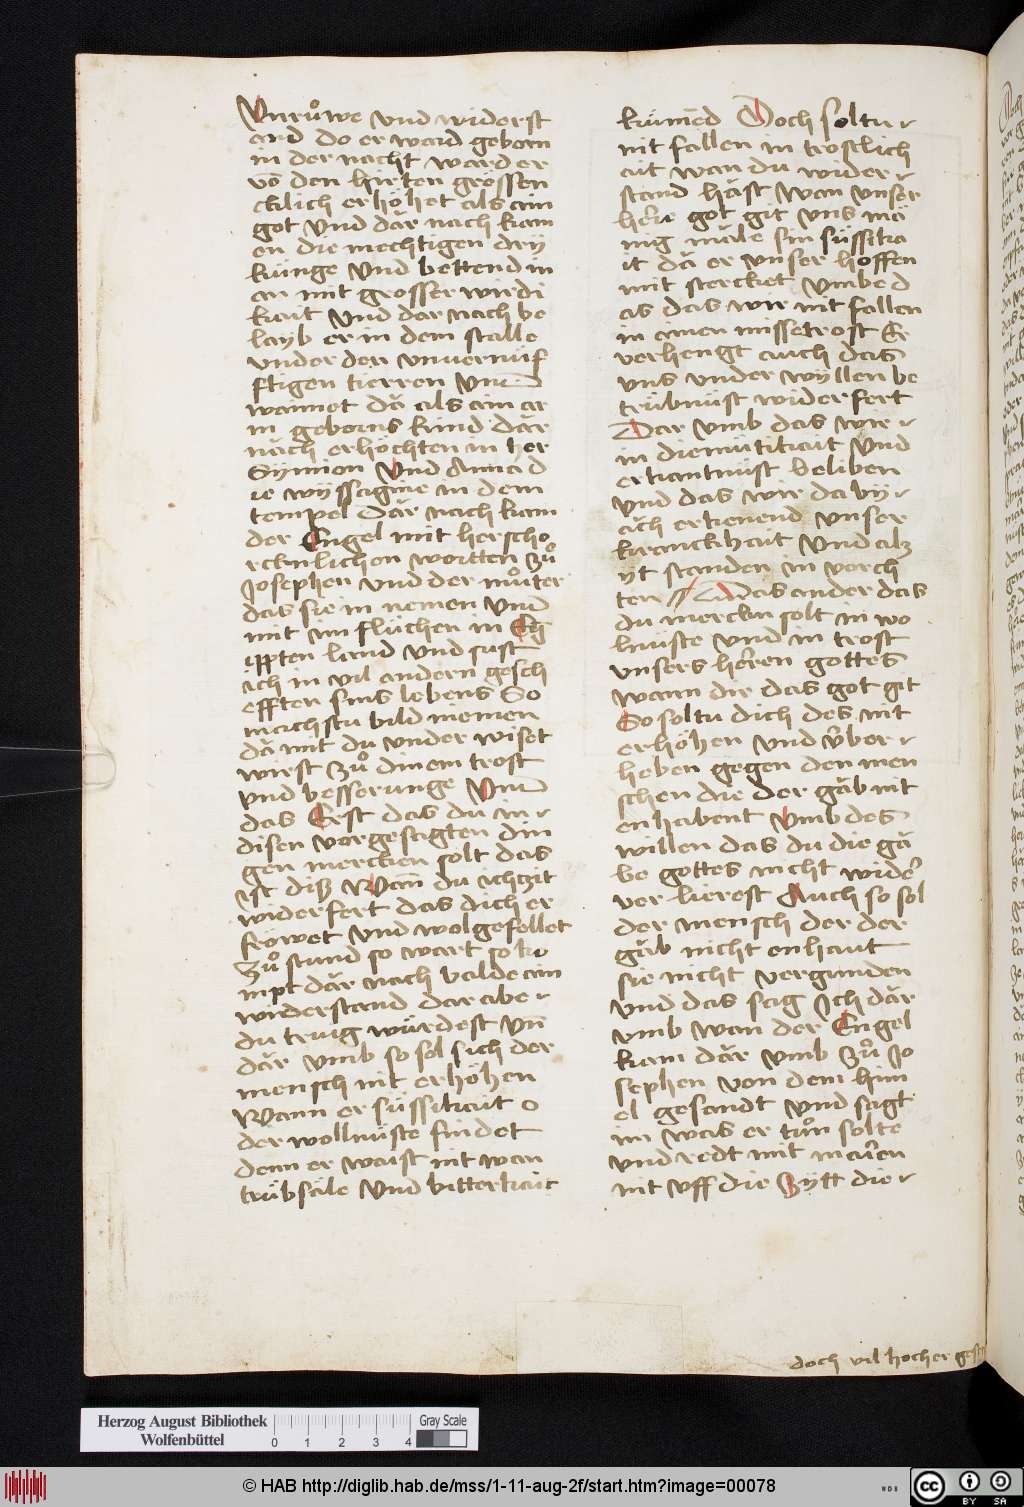 Vnrůwe vnd widerst
and do er ward geborn
in der nacht ward er
võ den hirten grössen
cklich erhöhet als ain
got vnd där nach kam
en die mechtigen drÿ
küinge vnd bettend in
an mit grosser wirdi
kait vnd dar nach be
layb er in dem stalle
vnder den vnuernüf
ftigen tierren vnd
wainnet dä als ain ar
m geborns kind där
näch erhöchten in her
Symion vnd Anna d
ie wÿssagine in dem
tempel där nach kam
der Engel mit herscho
rcknlichen wortten zů
Josephen vnd der můter
das sie in nemen vnd
mit im fluchen in Eg
ippten land vnd sust
ich in vil andern gesch
efften sins lebens So
machstu bild niemen
dä mit du vnder wiset
wirst zů dinem trost
vnd besserunge vnd
das Erst das du in
disen vorgesagten din
gen mercken solt das
yst disz Wañ du ichzit
widerfert das dich er
fröwet vnd wolgefellet
zů stund so wart so ku
mpt där nach balde ain
widerstand dar aber
du trurig würdest vñ
där vmb so sol sich der
mensch nit erhöhen
Wann er süssikait o
der wollnüste findet
denn er waist nit wan
trübsäle vnd bitterkait
kumēd Doch soltu
nit fallen in trostlich
ait wan du wider
stand häst wan vnser
herre got git vns mä
nig mäle sin süssika
it dä er vnser hoffen
mit stercket vmbe d
as das wir nit fallen
in ainen missetrost Er
verhengt auch das
vns vnder wyllen be
trübnüst widerfert
Dar vmb das wir
in diemütikait vnd
erkantnüst beliben
vnd das wir da bÿ
äch erkenend vnser
kranckhait vnd alz
ÿt standen in vorch
ten // Das ander das
du mercken solt in wo
lnüste vnd in trost
vnsers herren gottes
wann dir das got git
So soltu dich des nit
erhöhen vnd vber
heben gegen den men
schen die der gäb nit
enhabent vmb des
willen das du die gä
be gottes nicht wider
verlierest Auch so sol
der mensch der der
gäb nicht enhaut
sie nicht vergunden
vnd das sag ich där
vmb wan der Engel
kam där vmb zů Jo
sephen von dem him
el gesandt vnd sagt
im was er tůn solte
vnd redt mit marien
nit vff die Zÿtt die
doch vil hocher
Herzog August Bibliothek
Wolfenbüttel
0 1 2 3 4
Gray Scale
© HAB http://diglib.hab.de/mss/1-11-aug-2f/start.htm?image=00078
WDB
cc BY SA